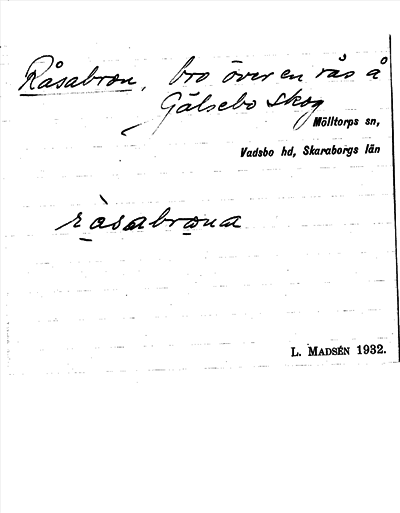 Råsabron, bro över en rås å
Gälsebo skog
Mölltorps sn,
Vadsbo hd, Skaraborgs län
ràsabrona
L. MADSÉN 1932.